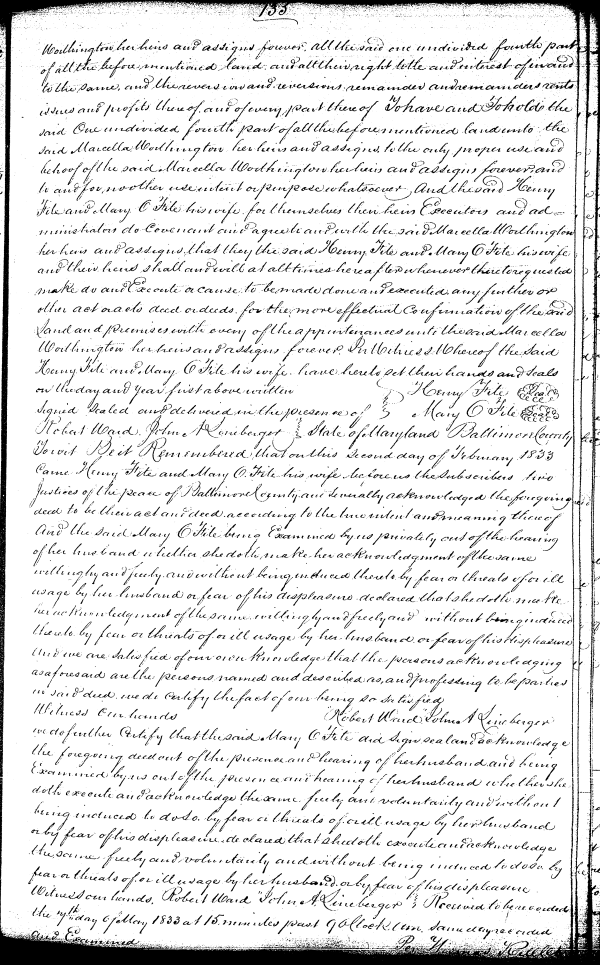 133
Worthington her heirs and assigns forever, all the said one undivided fourth part
of all the before mentioned land and all their right title and interest of in and
to the same, and the reversion and reversions remainder and remainders rents
issues and profits thereof, and of every part thereof To have and To hold the
said One undivided fourth part of all the before mentioned land unto the
said Marcella Worthington her heirs and assigns, to the only proper use and
behoof of the said Marcella Worthington her heirs and assigns forever, and
to and for no other use intent or purpose whatsoever, And the said Henry
Fite and Mary O Fite his wife, for themselves their heirs Executors and ad-
ministrators do Covenant and agree to and with the said Marcella Worthington
her heirs and assigns, that they the said Henry Fite and Mary O Fite his wife
and their heirs shall and will at all times hereafter whenever thereto requested
make do and Execute or cause to be made done and executed any further or
other act or acts deed or deeds, for the more effectual Confirmation of the said
Land and premises with every of the appurtenances unto the said Marcella
Worthington her heirs and assigns forever. In Witness Whereof the said
Henry Fite and Mary O Fite his wife have hereto set their hands and Seals
on the day and Year first above written Henry Fite Seal
Signed Sealed and delivered in the presence of Mary O Fite Seal
Robert Ward John A Leineberger State of Maryland Baltimore County
To wit Be it Remembered that on this Second day of February 1833
Came Henry Fite and Mary O. Fite his wife before us the Subscribers two
Justices of the peace of Baltimore County and Severally acknowledged the foregoing
deed to be their act and deed according to the true intent and meaning thereof
And the said Mary O Fite being Examined by us privately out of the hearing
of her husband whether she doth make her acknowledgment of the same
willingly and freely and without being induced thereto by fear or threats of or ill
usage by her husband or fear of his displeasure declared that she doth make
her acknowledgment of the same willingly and freely and without being induced
thereto by fear or threats of or ill usage by her husband or fear of his displeasure
And we are satisfied of our own knowledge that the persons acknowledging
as aforesaid are the persons named and described as, and professing to be parties
in said deed, we do certify the fact of our being so satisfied
Witness Our hands Robert Ward John A Leineberger
we do further Certify that the said Mary O Fite did sign seal and acknowledge
the foregoing deed out of the presence and hearing of her husband and being
Examined by us out of the presence and hearing of her husband whether she
doth execute and acknowledge the same freely and voluntarily and without
being induced to do so by fear or threats of or ill usage by her husband
or by fear of his displeasure, declared that she doth execute and acknowledge
the same freely and voluntarily and without being induced to do so by
fear or threats of or ill usage by her husband or by fear of his displeasure
Witness our hands, Robert Ward John A Leineberger Received to be recorded
the day of May 1833 at 15 minutes past 9 OClock am same day recorded
and Examined Per Thomas